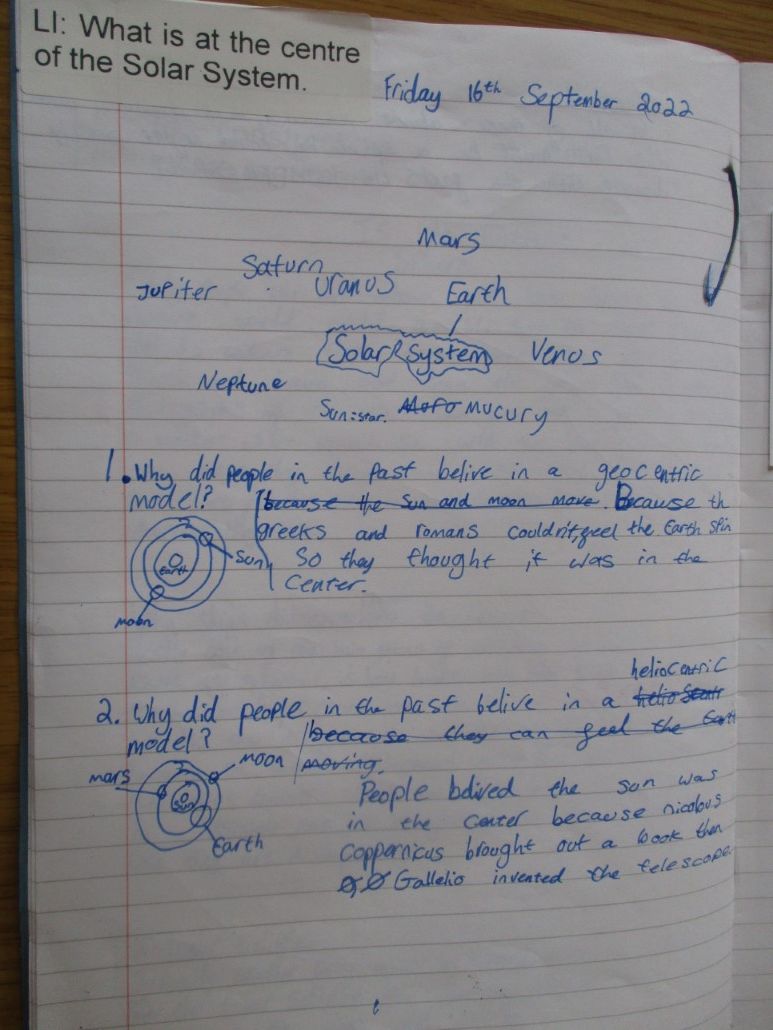 LI: What is at the centre
of the Solar System.
Friday 16th September 2022
Mars
Saturn
Jupiter
Uranus
Earth
Solar System
Venos
Neptune
Sun=star.
Mucury
1. Why did people in the Past belive in a geocentric
model?
because the Sun and moon move. Because th
greeks and romans couldn't feel the Earth spin
Sun
So they thought it was in the
Earth
Center.
moon
heliocentric
2. Why did people in the past belive in a helio
model?
because they can feel the Earth
moving.
moon
mars
Sun
People belived the sun was
in the center because nicolous
Earth
Coppernicus brought out a book then
Gallelio invented the telescope.